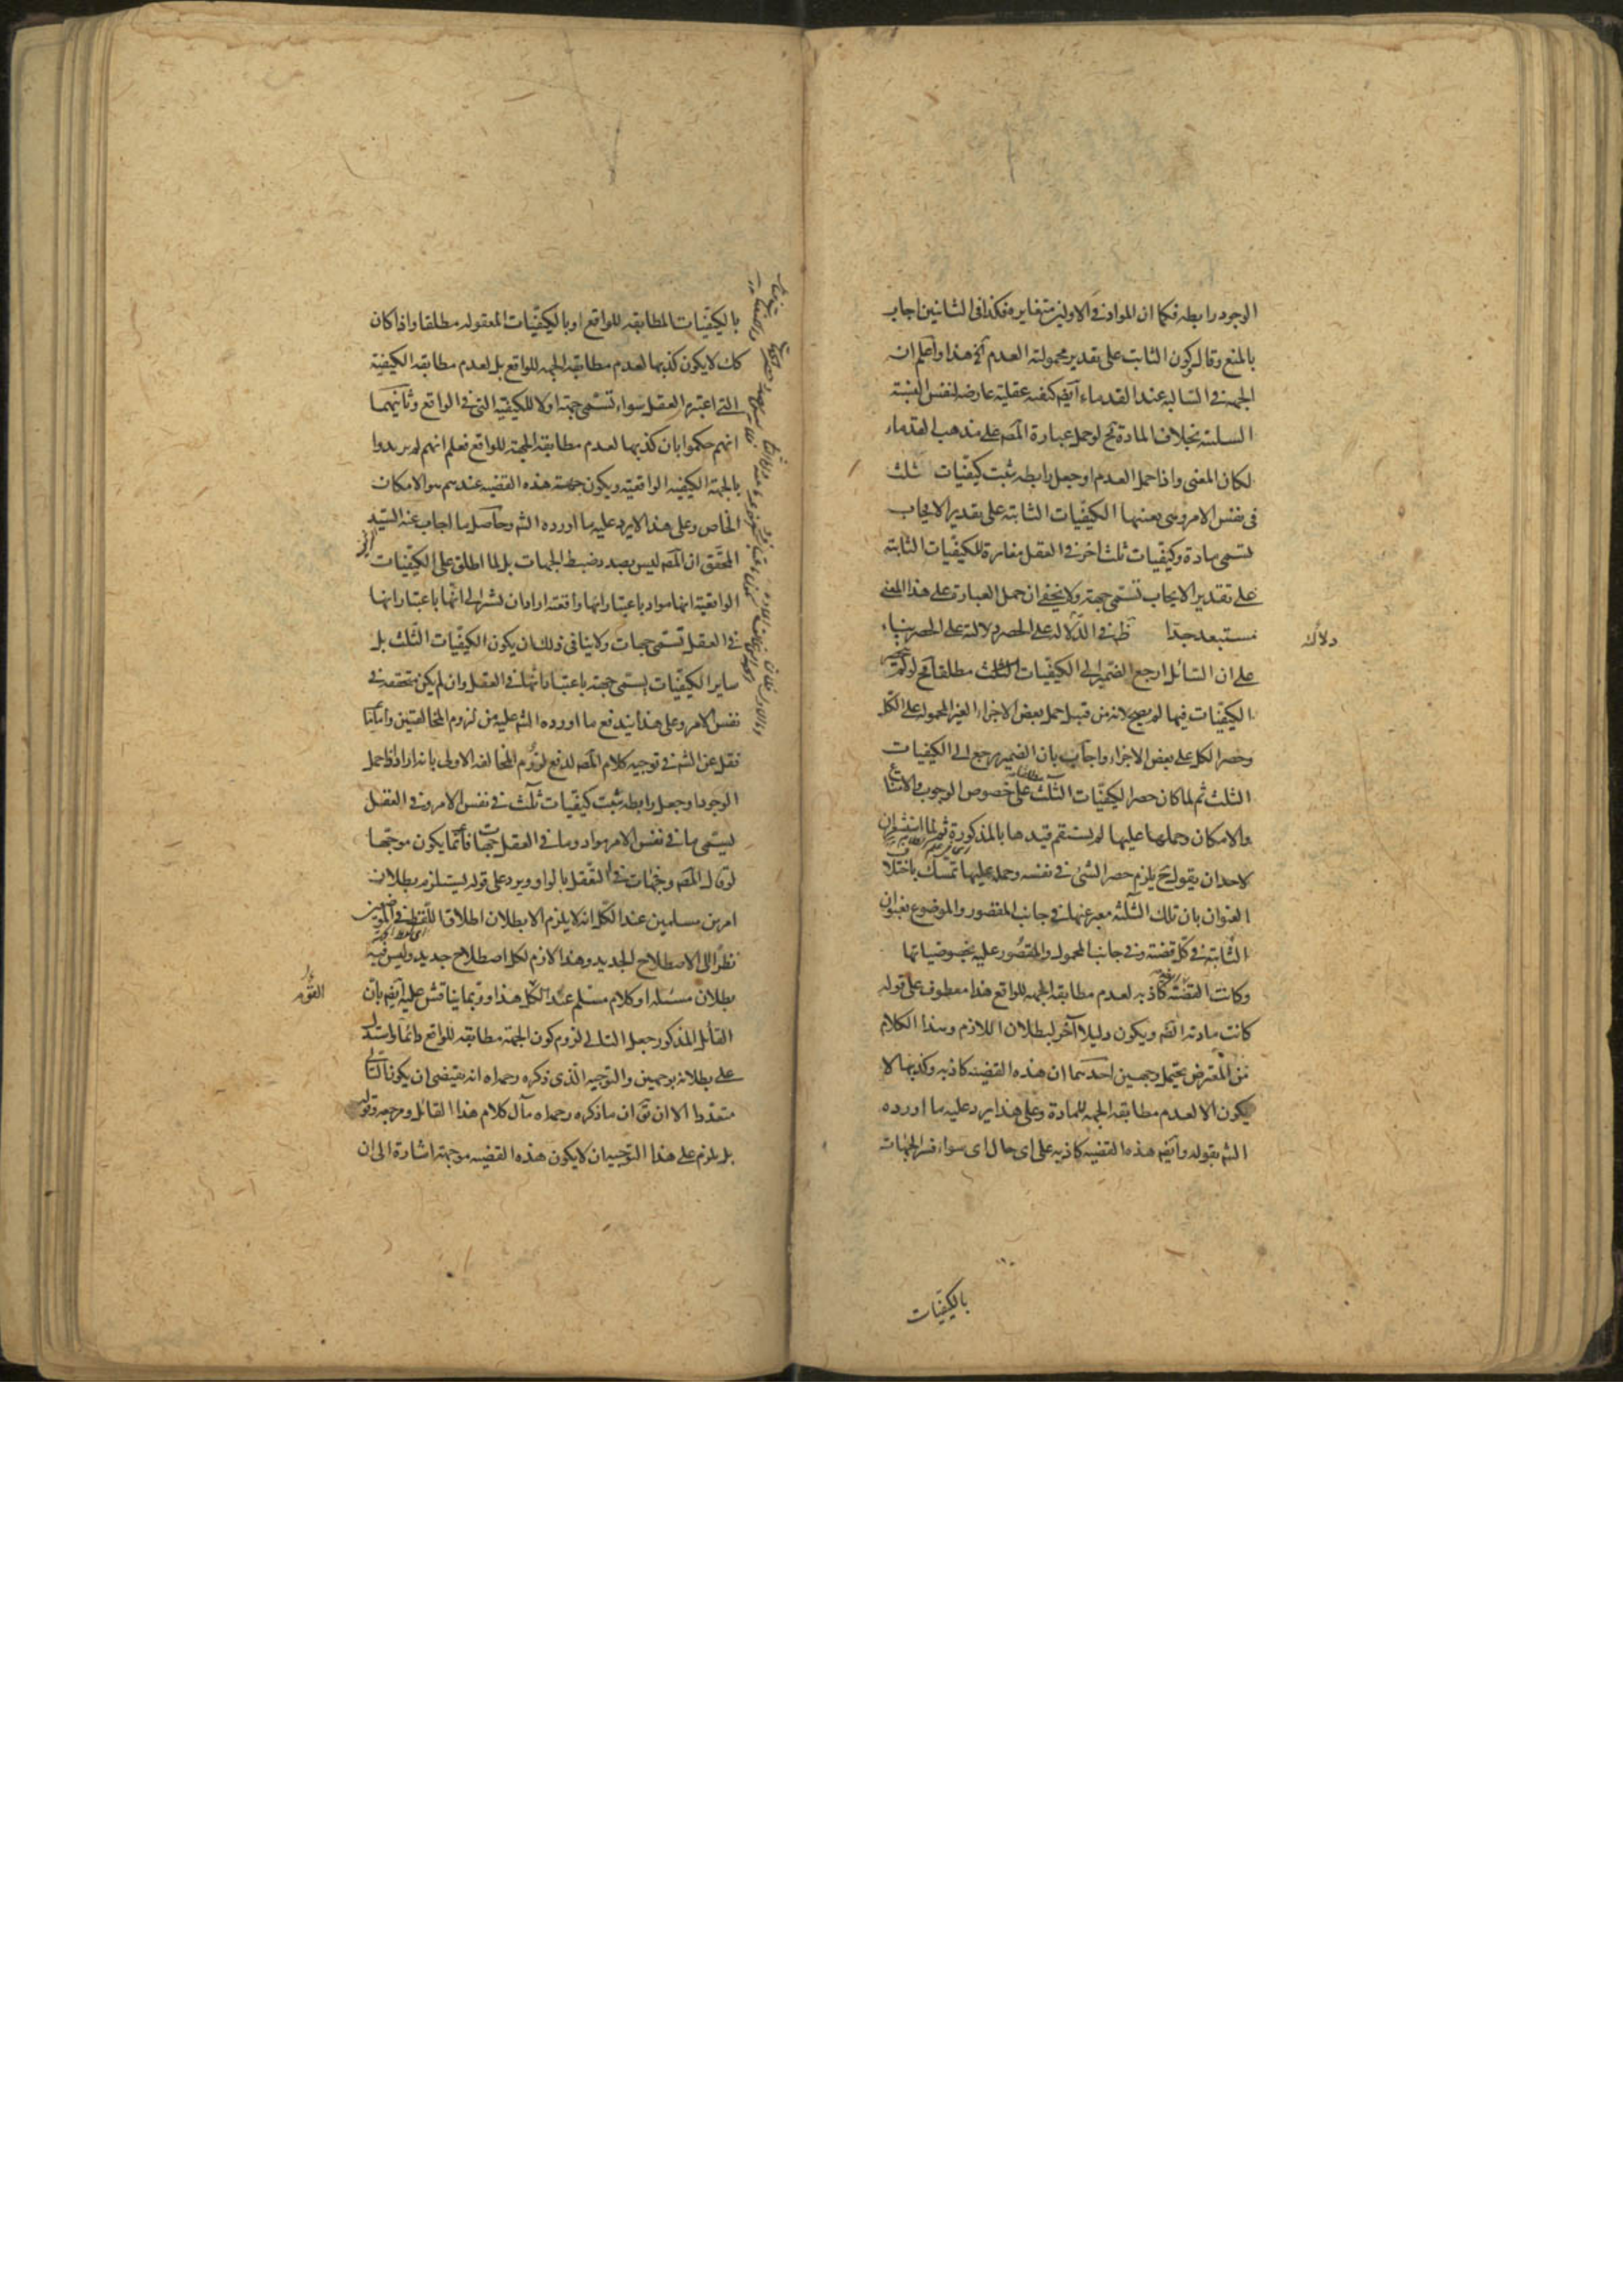 الوجود رابطه فكما ان المواد فى الاولين متغايره فكذا فى الثانيين اجاب
بالمنع وقال كون الثابت على تقدير محمولية العدم آلخ هذا واعلم ان
الجهة فى السالبه عند القدماء ايضه كيفيه عقلية عارضه لنفس النسبة
السلبية بخلاف المادة فح لو حمل عبارة المصه على مذهب القدماء
لكان المعنى واذا حمل العدم او جعل رابطه يثبت كيفيّات ثلث
فى نفس الامر وهى بعينها الكيفيّات الثابته على تقدير الايجاب
تسمى مادة وكيفيّات ثلث اخر فى العقل مغايرة للكيفيّات الثابته
على تقدير الايجاب تسمى جهة ولا يخفى ان حمل العبارة على هذا المعنى
مستبعد جدّا فى الدّلاله على الحصر دلالة على الحصر بناء
دلالت
على ان السّائل ارجع الضّمير الى الكيفيّات الثلث مطلقا فح لو لم
الكيفيّات فيها لم يصح لانه من قبيل حمل بعض الاجزاء الغير المحموله على الكل
وحصر الكل على بعض الاجزاء واجاب بان الضمير يرجع الى الكيفيات
الثلث ثم لما كان حصر الكيفيّات الثلث على خصوص الوجوب والامتناع
والامكان وحملها عليها لم يستقم قيدها بالمذكورة ثم لما استشعر ان
لاحد ان يقول ح يلزم حصر الشئ فى نفسه وحمله عليها تمسك باختلا
العنوان بان تلك الثلثه معبر عنها فى جانب المقصور والموضوع بعنوان
الثابتة فى كلّ قضيّة وفى جانب المحمول والمقصور عليه بخصوصياتها
وكانت القضيّة كاذبه لعدم مطابقة الجهه للواقع هذا معطوف على قوله
كانت مادته الخ ويكون دليلا آخر لبطلان اللازم وهذا الكلام
من المعترض يحتمل وجهين احدهما ان هذه القضيه كاذبه وكذبها لا
يكون الا لعدم مطابقة الجهه للمادة وعلى هذا يرد عليه ما اورده
الشه بقوله وايضه هذه القضيه كاذبه على اى حال اى سواء فسر الجهات
بالكيفيّات
بالكيفيّات المطابقه للواقع او بالكيفيّات المعقوله مطلقا واذا كان
كك لا يكون كذبها لعدم مطابقة الجهه للواقع بل لعدم مطابقه الكيفية
التى اعتبرها العقل سواء تسمى جهة او لا للكيفية التى فى الواقع وثانيهما
انهم حكموا بان كذبها لعدم مطابقة الجهة للواقع فعلم انهم لم يريدوا
بالجهة الكيفيه الواقعيّة ويكون جهة هذه القضيه عندهم هو الامكان
الخاص وعلى هذا لا يرد عليه ما اورده الشه وحاصل ما اجاب عنه السّيد
المحقّق ان المصه ليس بصدد ضبط الجهات بل لما اطلق على الكيفيّات
الواقعيّة انها مواد باعتبار انها واقعة اراد ان يشير الى انّها باعتبار انها
فى العقل تسمى جهات ولا ينافى ذلك ان يكون الكيفيّات الثلث بل
ساير الكيفيّات يسمى جهة باعتبار انها فى العقل وان لم يكن متحققه فى
نفس الامر وعلى هذا يندفع ما اورده الشه عليه من لزوم المخالفتين
فقل عن الشه فى توجيه كلام المصه لدفع لزوم المخالفه الاولى بانه اراد اذا حمل
الوجود او جعل رابطه يثبت كيفيّات ثلث فى نفس الامر وفى العقل
يسمى ما فى نفس الامر مواد وما فى العقل جهات فانّما يكون موجّها
لو قال المصه وجهات فى التّعقل بالواو ويرد على قوله يستلزم بطلان
امرين مسلمين عند الكل انه لا يلزم الا بطلان اطلاق اللّفظ فى الموضعين
نظرًا الى الاصطلاح الجديد وهذا لازم لكل اصطلاح جديد وليس فيه
بطلان مسئله او كلام مسلم عند الكل هذا وربما يناقش عليه ايضه بان
القائل المذكور جعل التالى لزوم كون الجهة مطابقه للواقع دائما واستدل
على بطلانه بوجهين والتوجيه الذى ذكره رحمه اه انه يقتضى ان يكون التالى
متعدّدا الا ان يق ان ما ذكره رحمه اه مآل كلام هذا القائل ومرجعه وقوله
بل يلزم على هذا التوجيه ان لا يكون هذه القضيه موجهة اشارة الى ان